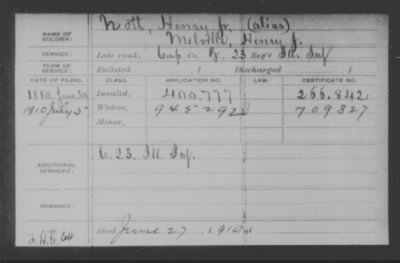 Nott, Henry Jr. (alias)
NAME OF SOLDIER: Melville, Henry J.
SERVICE: Late rank, Cap Co. 23 Reg't Ill. Inf
TERM OF SERVICE: Enlisted 1 Discharged 1
DATE OF FILING. CLASS. APPLICATION NO. LAW. CERTIFICATE NO.
1880, June 30 Invalid, 400.777 266.842
1910 July 5 Widow, 945292 709327
Minor,
ADDITIONAL SERVICES: C. 23. Ill. Inf.
REMARKS:
Died June 27 1910 at